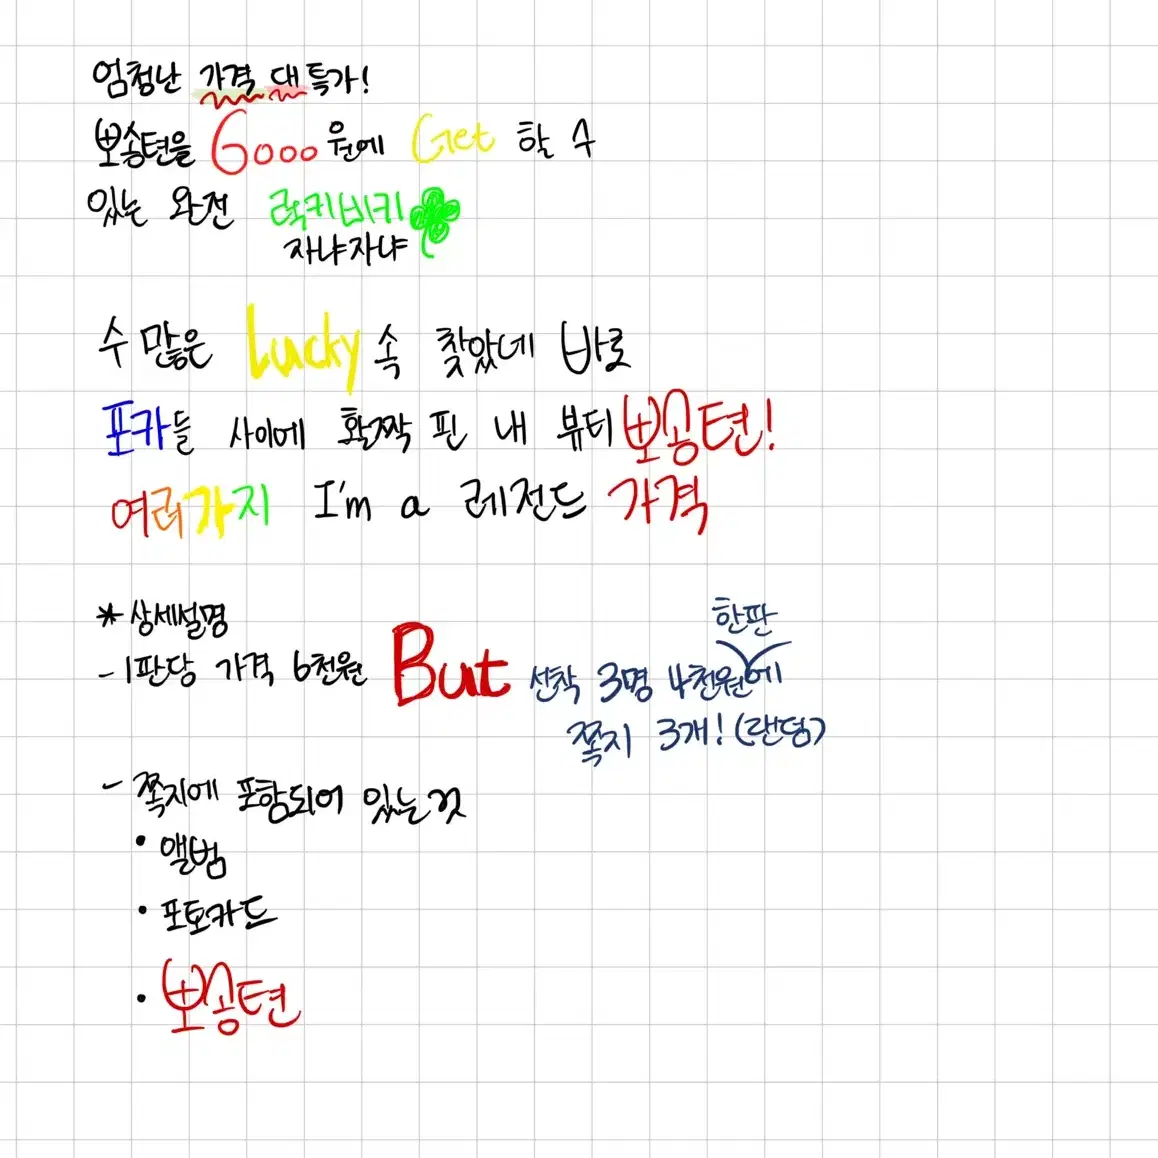 엄청난 가격 대 특가!
뽀송편을 6000원에 Get 할 수
있는 완전 럭키비키
자냐자냐
수 많은 Lucky 속 찾았네 바로
포카들 사이에 활짝 핀 내 뷰티 뽀송편!
여러가지 I'm a 레전드 가격
* 상세설명
- 1판당 가격 6천원 But 선착 3명 4천원에 한판
쪽지 3개! (랜덤)
- 쪽지에 포함되어 있는 것
• 앨범
• 포토카드
• 뽀송편